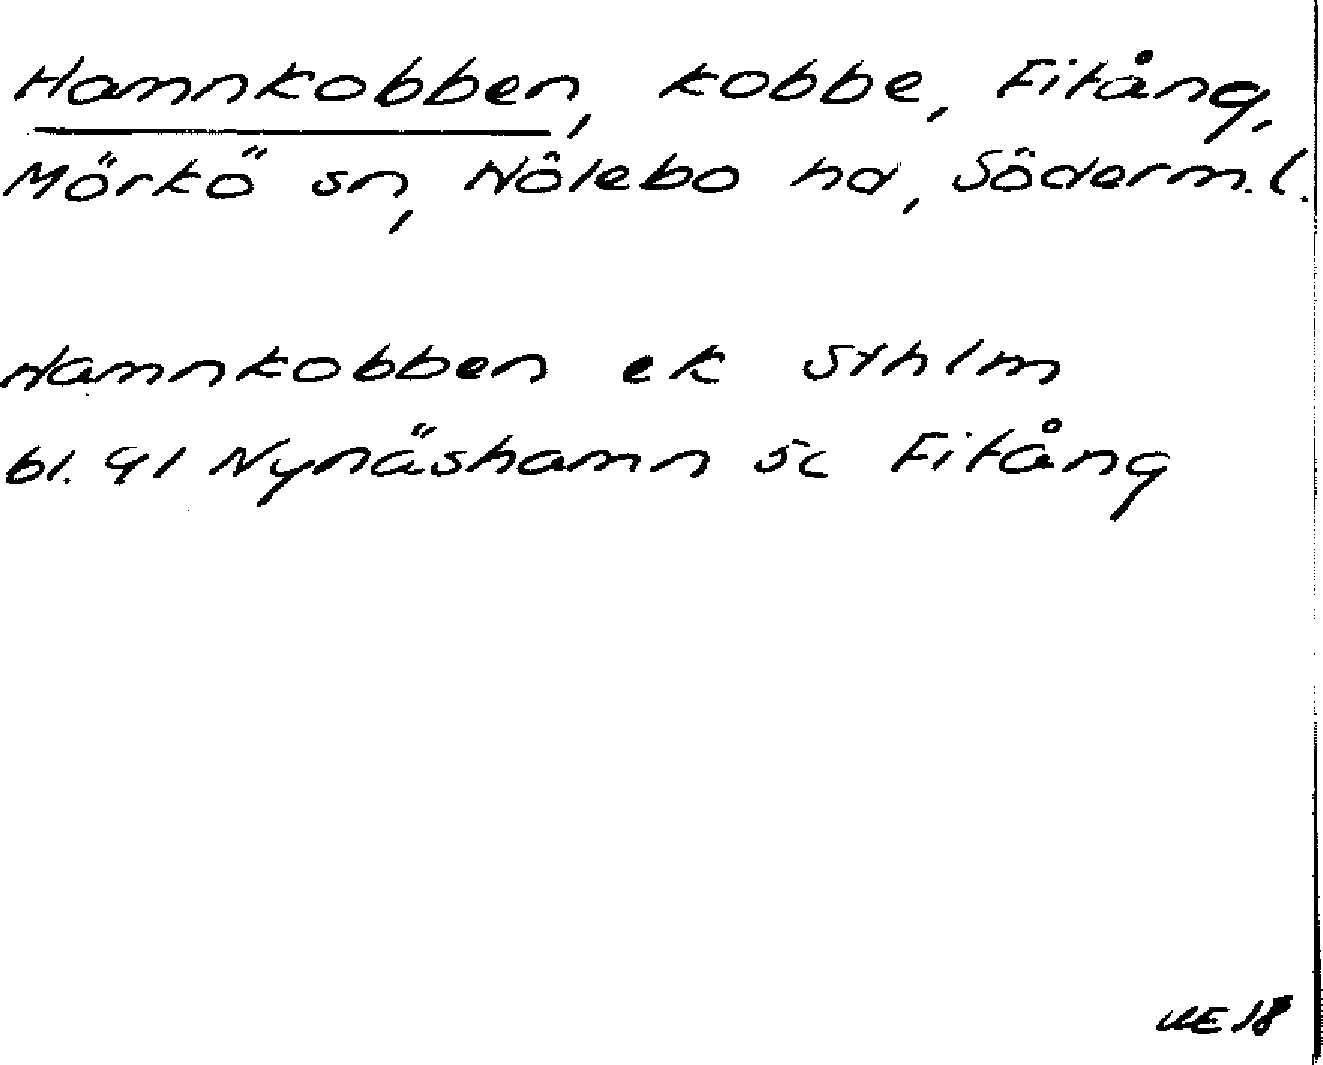 Hamnkobben, kobbe, Fifång,
Mörkö sn, Hölebo hd, Söderm.l.
Hamnkobben ek Sthlm
bl. 91 Nynäshamn sc Fifång